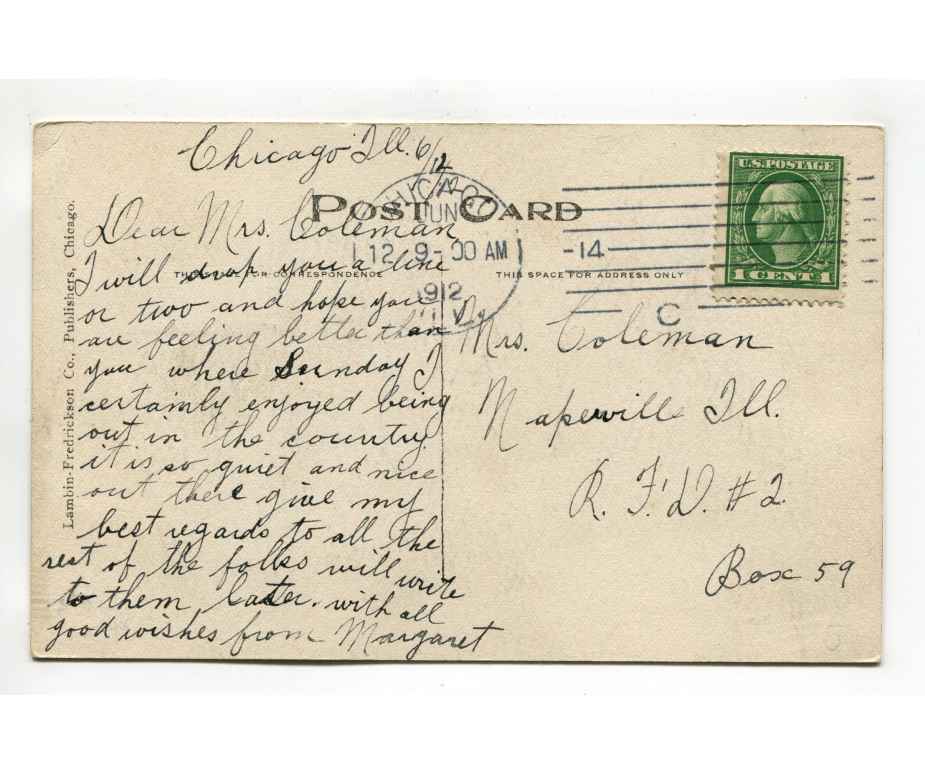 Chicago Ill. 6/12
POST CARD
CHICAGO
JUN
12 9-00 AM
1912
ILL.
-14-
C
U.S. POSTAGE
1 CENT 1
THIS SPACE FOR CORRESPONDENCE
THIS SPACE FOR ADDRESS ONLY
Lambin-Fredrickson Co., Publishers, Chicago.
Dear Mrs. Coleman
I will drop you a line
or two and hope you
are feeling better than
you where Sunday I
certainly enjoyed being
out in the country
it is so quiet and nice
out there give my
best regards to all the
rest of the folks will write
to them later. with all
good wishes from Margaret
Mrs. Coleman
Napewille Ill.
R. F. D. #2
Box 59